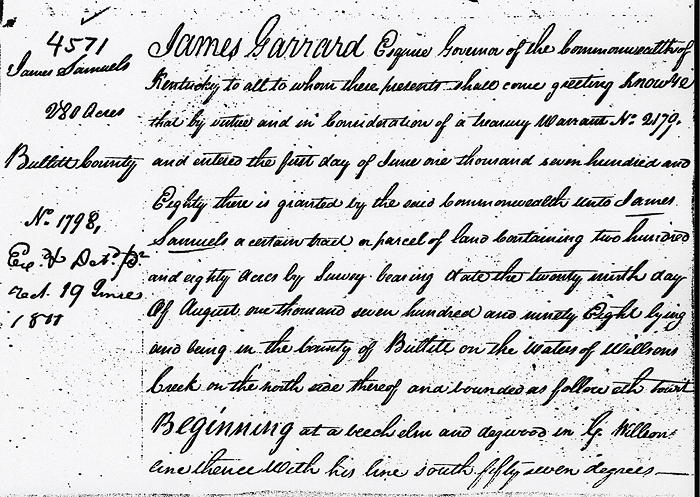 4571
James Samuels
280 Acres
Bullitt County
No. 1798,
Exd. & Deld. pr.
rect. 19 June
1801
James Garrard Esquire Governor of the Commonwealth of
Kentucky to all to whom these presents shall come greeting Know Ye
that by virtue and in Consideration of a treasury Warrant No. 2179,
and entered the first day of June one thousand seven hundred and
Eighty there is granted by the said Commonwealth unto James
Samuels a certain tract or parcel of land Containing two hundred
and eighty Acres by Survey bearing date the twenty ninth day
Of August one thousand seven hundred and ninety Eight lying
and being in the County of Bullitt on the Waters of Willsons
Creek on the north side thereof and bounded as followeth towit
Beginning at a beech elm and dogwood in G. Willsons
line thence With his line south fifty seven degrees —